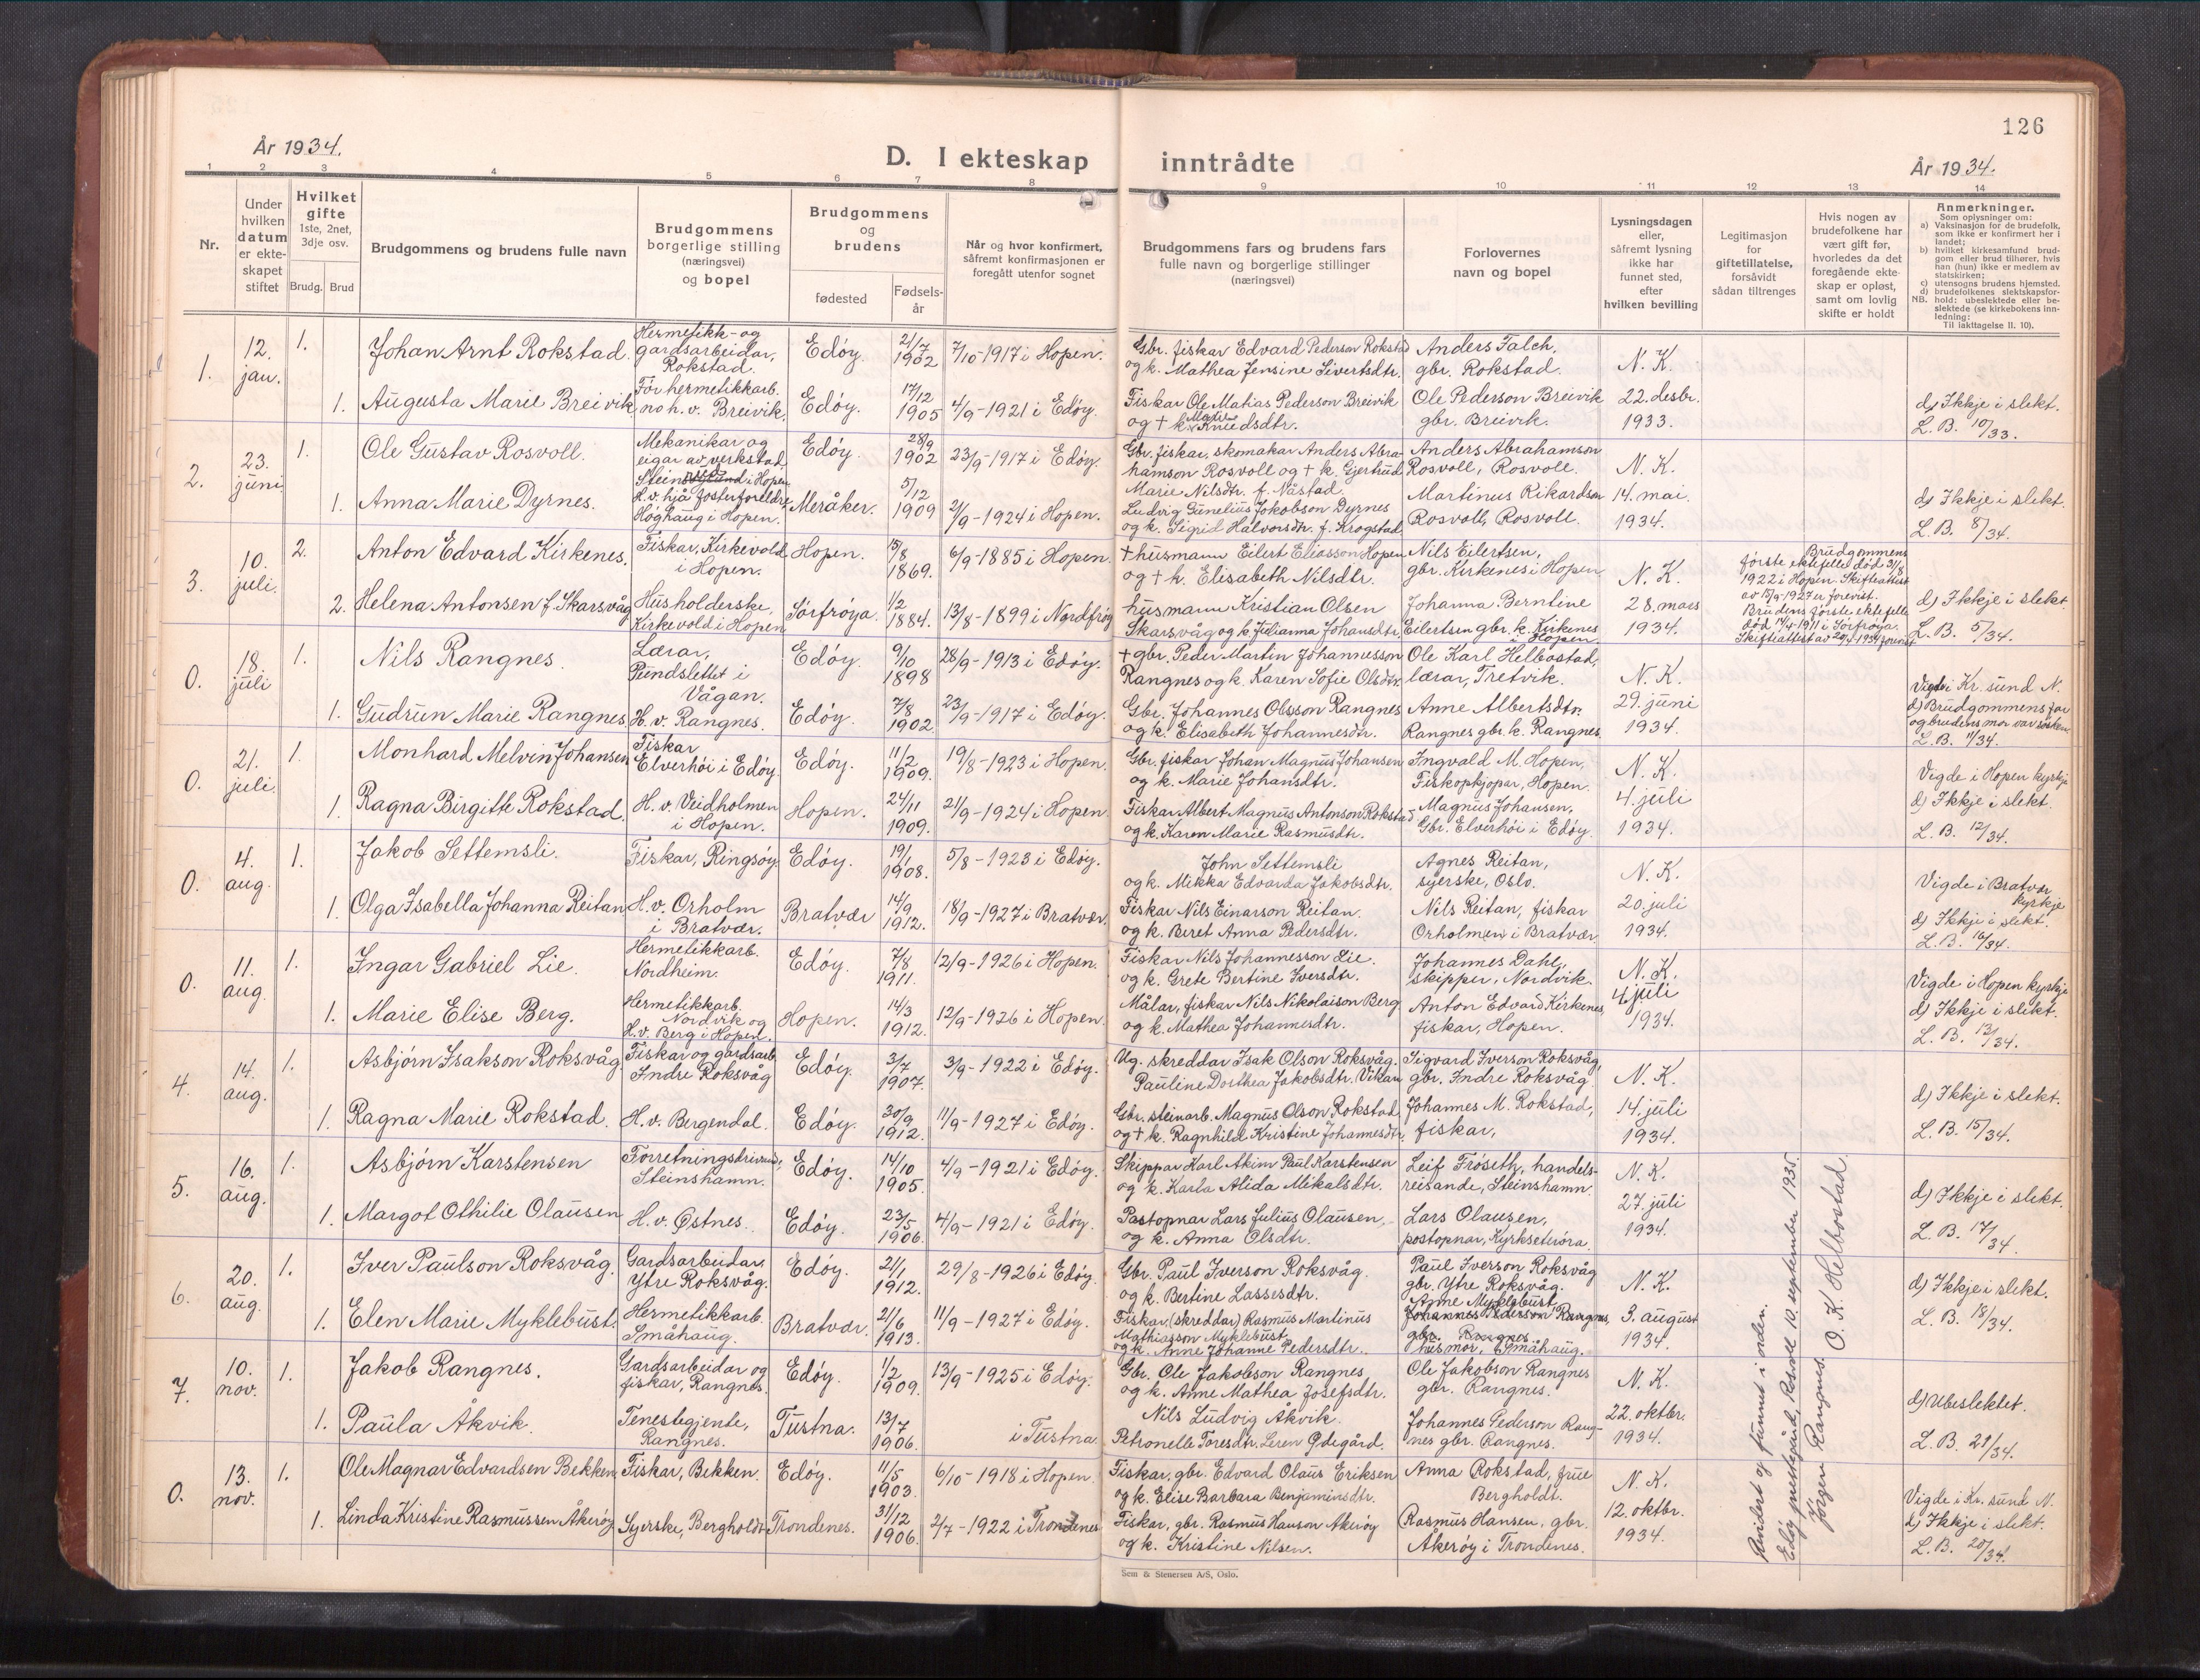 126
År 1934.
D. I ekteskap inntrådte
År 1934.
1 2 3 4 5 6 7 8 9 10 11 12 13 14
Nr.
Under hvilken datum er ekte-skapet stiftet
Hvilket gifte 1ste, 2net, 3dje osv.
Brudg. Brud
Brudgommens og brudens fulle navn
Brudgommens borgerlige stilling (næringsvei) og bopel
Brudgommens og brudens
fødested
Fødsels-år
Når og hvor konfirmert, såfremt konfirmasjonen er foregått utenfor sognet
Brudgommens fars og brudens fars fulle navn og borgerlige stillinger (næringsvei)
Forlovernes navn og bopel
Lysningsdagen eller, såfremt lysning ikke har funnet sted, efter hvilken bevilling
Legitimasjon for giftetillatelse, forsåvidt sådan tiltrenges
Hvis nogen av brudefolkene har vært gift før, hvorledes da det foregående ekte-skap er opløst, samt om lovlig skifte er holdt
Anmerkninger.
Som oplysninger om:
a) Vaksinasjon for de brudefolk, som ikke er konfirmert her i landet;
b) hvilket kirkesamfund brud-gom eller brud tilhører, hvis han (hun) ikke er medlem av statskirken;
c) utensogns brudens hjemsted.
d) brudefolkenes slektskapsfor-hold: ubeslektede eller be-slektede (se kirkebokens inn-ledning:
NB.
Til iakttagelse II. 10).
1. 12. jan. 1. Johan Arnt Rokstad. Hermetikk- og gardsarbeidar, Rokstad. Edøy. 21/7 1902 7/10-1917 i Hopen. Gbr. fiskar Edvard Pederson Rokstad og k. Mathea Jensine Sivertsdtr. Anders Falch, gbr. Rokstad. N. K.
1. Augusta Marie Breivik Før hermetikkarb. no h. v. Breivik. Edøy. 17/12 1905 4/9-1921 i Edøy. Fiskar Ole Matias Pederson Breivik og + k. Marie Knudsdtr. Ole Pederson Breivik gbr. Breivik. 22. desbr. 1933. d) Ikkje i slekt. L. B. 10/33.
2. 23. juni 1. Ole Gustav Rosvoll. Mekanikar og eigar av verkstad, i Hopen Edøy. 28/9 1902 23/9-1917 i Edøy. Gbr. fiskar, skomakar Anders Abra-hamson Rosvoll og + k. Gjertrud Marie Nilsdtr. f. Nåstad. Anders Abrahamson Rosvoll, Rosvoll. N. K.
1. Anna Marie Dyrnes. H. v. hjå fosterforeldre Høghaug i Hopen. Meråker. 5/12 1909 21/9-1924 i Hopen. Ludvig Gunelius Jakobson Dyrnes og k. Sigrid Halvorsdtr. f. Krogstad Martinus Rikardsen Rosvoll, Rosvoll. 14. mai. 1934. d) Ikkje i slekt. L. B. 8/34.
3. 10. juli. 2. Anton Edvard Kirkenes. Fiskar, Kirkevold i Hopen. Hopen. 15/8 1869. 6/9-1885 i Hopen. + husmann Eilert Eliasson Hopen og + k. Elisabeth Nilsdtr. Nils Eilertsen, gbr. Kirkenes i Hopen N. K. Brudgommens første ektefelle død 31/8 1922 i Hopen. Skifteattest av 15/9-1927 er forevist.
2. Helena Antonsen f. Skarsvåg Husholderske, Kirkevold i Hopen Sørfrøya. 1/2 1884. 13/8-1899 i Nordfrøy husmann Kristian Olsen Skarsvåg og k. Julianna Johansdtr. Johanna Berntine Eilertsen gbr. k. Kirkenes i Hopen. 28. mars 1934. Brudens første ektefelle død 14/4-1911 i Sørfrøya. Skifteattest av 20/4-1934 forevist d) Ikkje i slekt. L. B. 5/34.
0. 18. juli 1. Nils Rangnes. Lærar, Pundslettet i Vågan. Edøy. 9/10 1898 28/9-1913 i Edøy. + gbr. Peder Martin Johannesson Rangnes og k. Karen Sofie Olsdtr. Ole Karl Helbostad, lærar, Tretvik. N. K.
1. Gudrun Marie Rangnes. H. v. Rangnes. Edøy. 7/8 1902. 23/9-1917 i Edøy. Gbr. Johannes Olsson Rangnes og k. Elisabeth Johannesdtr. Anne Albertsdtr. Rangnes gbr. k. Rangnes. 29. juni 1934. Vigde i Kr. sund N. d) Brudgommens far og brudens mor var søsken. L. B. 11/34.
0. 21. juli. 1. Monhard Melvin Johansen Fiskar Elverhøi i Edøy. Edøy. 11/2 1909. 19/8-1923 i Hopen. Gbr. fiskar Johan Magnus Johansen og k. Marie Johansdtr. Ingvald M. Hopen, Fiskopkjøpar, Hopen. N. K.
1. Ragna Birgitte Rokstad. H. v. Veidholmen i Hopen. Hopen. 24/11 1909. 21/9-1924 i Hopen. Fiskar Albert Magnus Antonson Rokstad og k. Karen Marie Rasmusdtr. Magnus Johansen, Gbr. Elverhøi i Edøy. 4. juli 1934. Vigde i Hopen kyrkje d) Ikkje i slekt. L. B. 12/34.
0. 4. aug. 1. Jakob Settemsli. Fiskar, Ringsøy Edøy. 19/1 1908. 5/8-1923 i Edøy. John Settemsli og k. Mikka Edvarda Jakobsdtr. Agnes Reitan, syerske, Oslo. N. K.
1. Olga Isabella Johanna Reitan H. v. Orholm i Bratvær. Bratvær 14/9 1912. 18/9-1927 i Bratvær. Fiskar Nils Einarson Reitan. og k. Beret Anna Pedersdtr. Nils Reitan, fiskar Orholmen i Bratvær 20. juli 1934. Vigde i Bratvær kyrkje d) Ikkje i slekt. L. B. 16/34.
0. 11. aug. 1. Ingar Gabriel Lie. Hermetikkarb. Nordheim. Edøy. 7/8 1911. 12/9-1926 i Hopen. Fiskar Nils Johannesson Lie. og k. Grete Bertine Iversdtr. Johannes Dahl, skipper, Nordvik. N. K.
1. Marie Elise Berg. Hermetikkarb. Nordvik og H. v. Berg i Hopen. Hopen. 14/3 1912. 12/9-1926 i Hopen. Målar, fiskar Nils Nikolaison Berg og k. Mathea Johannesdtr. Anton Edvard Kirkenes, fiskar, Hopen. 4 juli 1934. Vigde i Hopen kyrkje d) Ikkje i slekt. L. B. 13/34.
4. 14. aug. 1. Asbjørn Isakson Roksvåg. Fiskar og gardsarb. Indre Roksvåg Edøy. 3/7 1907. 3/9-1922 i Edøy. Ug. skreddar Isak Olson Roksvåg. Pauline Dorthea Jakobsdtr. Vikan Sigvard Iverson Roksvåg, gbr. Indre Roksvåg. N. K.
1. Ragna Marie Rokstad. H. v. Bergendal. Edøy. 30/9 1912. 11/9-1927 i Edøy. Gbr. steinarb. Magnus Olson Rokstad og + k. Ragnhild Kristine Johannesdtr. Johannes M. Rokstad, fiskar, 14. juli 1934. d) Ikkje i slekt. L. B. 15/34.
5. 16. aug. 1. Asbjørn Karstensen Forretningsdrivande, Steinshamn. Edøy. 14/10 1905. 4/9-1921 i Edøy. Skippar Karl Akim Paul Karstensen og k. Karla Alida Mikalsdtr. Leif Frøseth, handels-reisande, Steinshamn. N. K.
1. Margot Othilie Olausen H. v. Østnes. Edøy. 23/5 1906. 4/9-1921 i Edøy. Postopnar Lars Julius Olausen, og k. Anna Olsdtr. Lars Olausen, postopnar, Kyrksæterøra. 27. juli 1934. d) Ikkje i slekt. L. B. 17/34.
6. 20. aug. 1. Iver Paulson Roksvåg. Gardsarbeidar, Ytre Roksvåg. Edøy. 21/1 1912. 29/8-1926 i Edøy. Gbr. Paul Iverson Roksvåg. og k. Bertine Lassesdtr. Paul Iverson Roksvåg gbr. Ytre Roksvåg. N. K.
1. Elen Marie Myklebust. Hermetikkarb. Småhaug. Bratvær. 21/6 1913. 11/9-1927 i Edøy. Fiskar, (skreddar) Rasmus Martinus Mathiasson Myklebust og k. Anne Johanne Pedersdtr. Anne Myklebust Johannes Pederson Rangnes, gbr. Rangnes. husmor, Småhaug. 3. august 1934. d) Ikkje i slekt. L. B. 18/34.
7. 10. nov. 1. Jakob Rangnes. Gardsarbeidar og fiskar, Rangnes. Edøy. 1/2 1909. 13/9-1925 i Edøy. Gbr. Ole Jakobson Rangnes og k. Anne Mathea Josefsdtr. Ole Jakobson Rangnes gbr. Rangnes. N. K.
1. Paula Åkvik. Tenestegjente, Rangnes. Tustna. 13/7 1906. i Tustna. Nils Ludvig Åkvik. Petronelle Toresdtr. Leren Ødegård. Johannes Pederson Rang-nes gbr. Rangnes. 22. oktbr. 1934. d) Ubeslektet. L. B. 21/34.
0. 13. nov. 1. Ole Magnar Edvardsen Bekken Fiskar, Bekken. Edøy. 11/5 1903. 6/10-1918 i Hopen. Fiskar, gbr. Edvard Olaus Eriksen og k. Elise Barbara Benjaminsdtr. Anna Rokstad, frue Bergholdt. N. K.
1. Linda Kristine Rasmussen Åkerøy Syerske, Bergholdt Trondenes. 31/12 1906. 2/7-1922 i Trondenes Fiskar, gbr. Rasmus Hanson Åkerøy og k. Kristine Nilsen. Rasmus Hansen, gbr. Åkerøy i Trondenes. 12. oktbr. 1934. Vigde i Kr. sund N. d) Ikkje i slekt. L. B. 20/34.
Revidert og funnet i orden.
Edøy prestegård, Rosvoll 10. september 1935.
Jørgen Rangnes. O. K. Helbostad.
Sem & Stenersen A/S, Oslo.